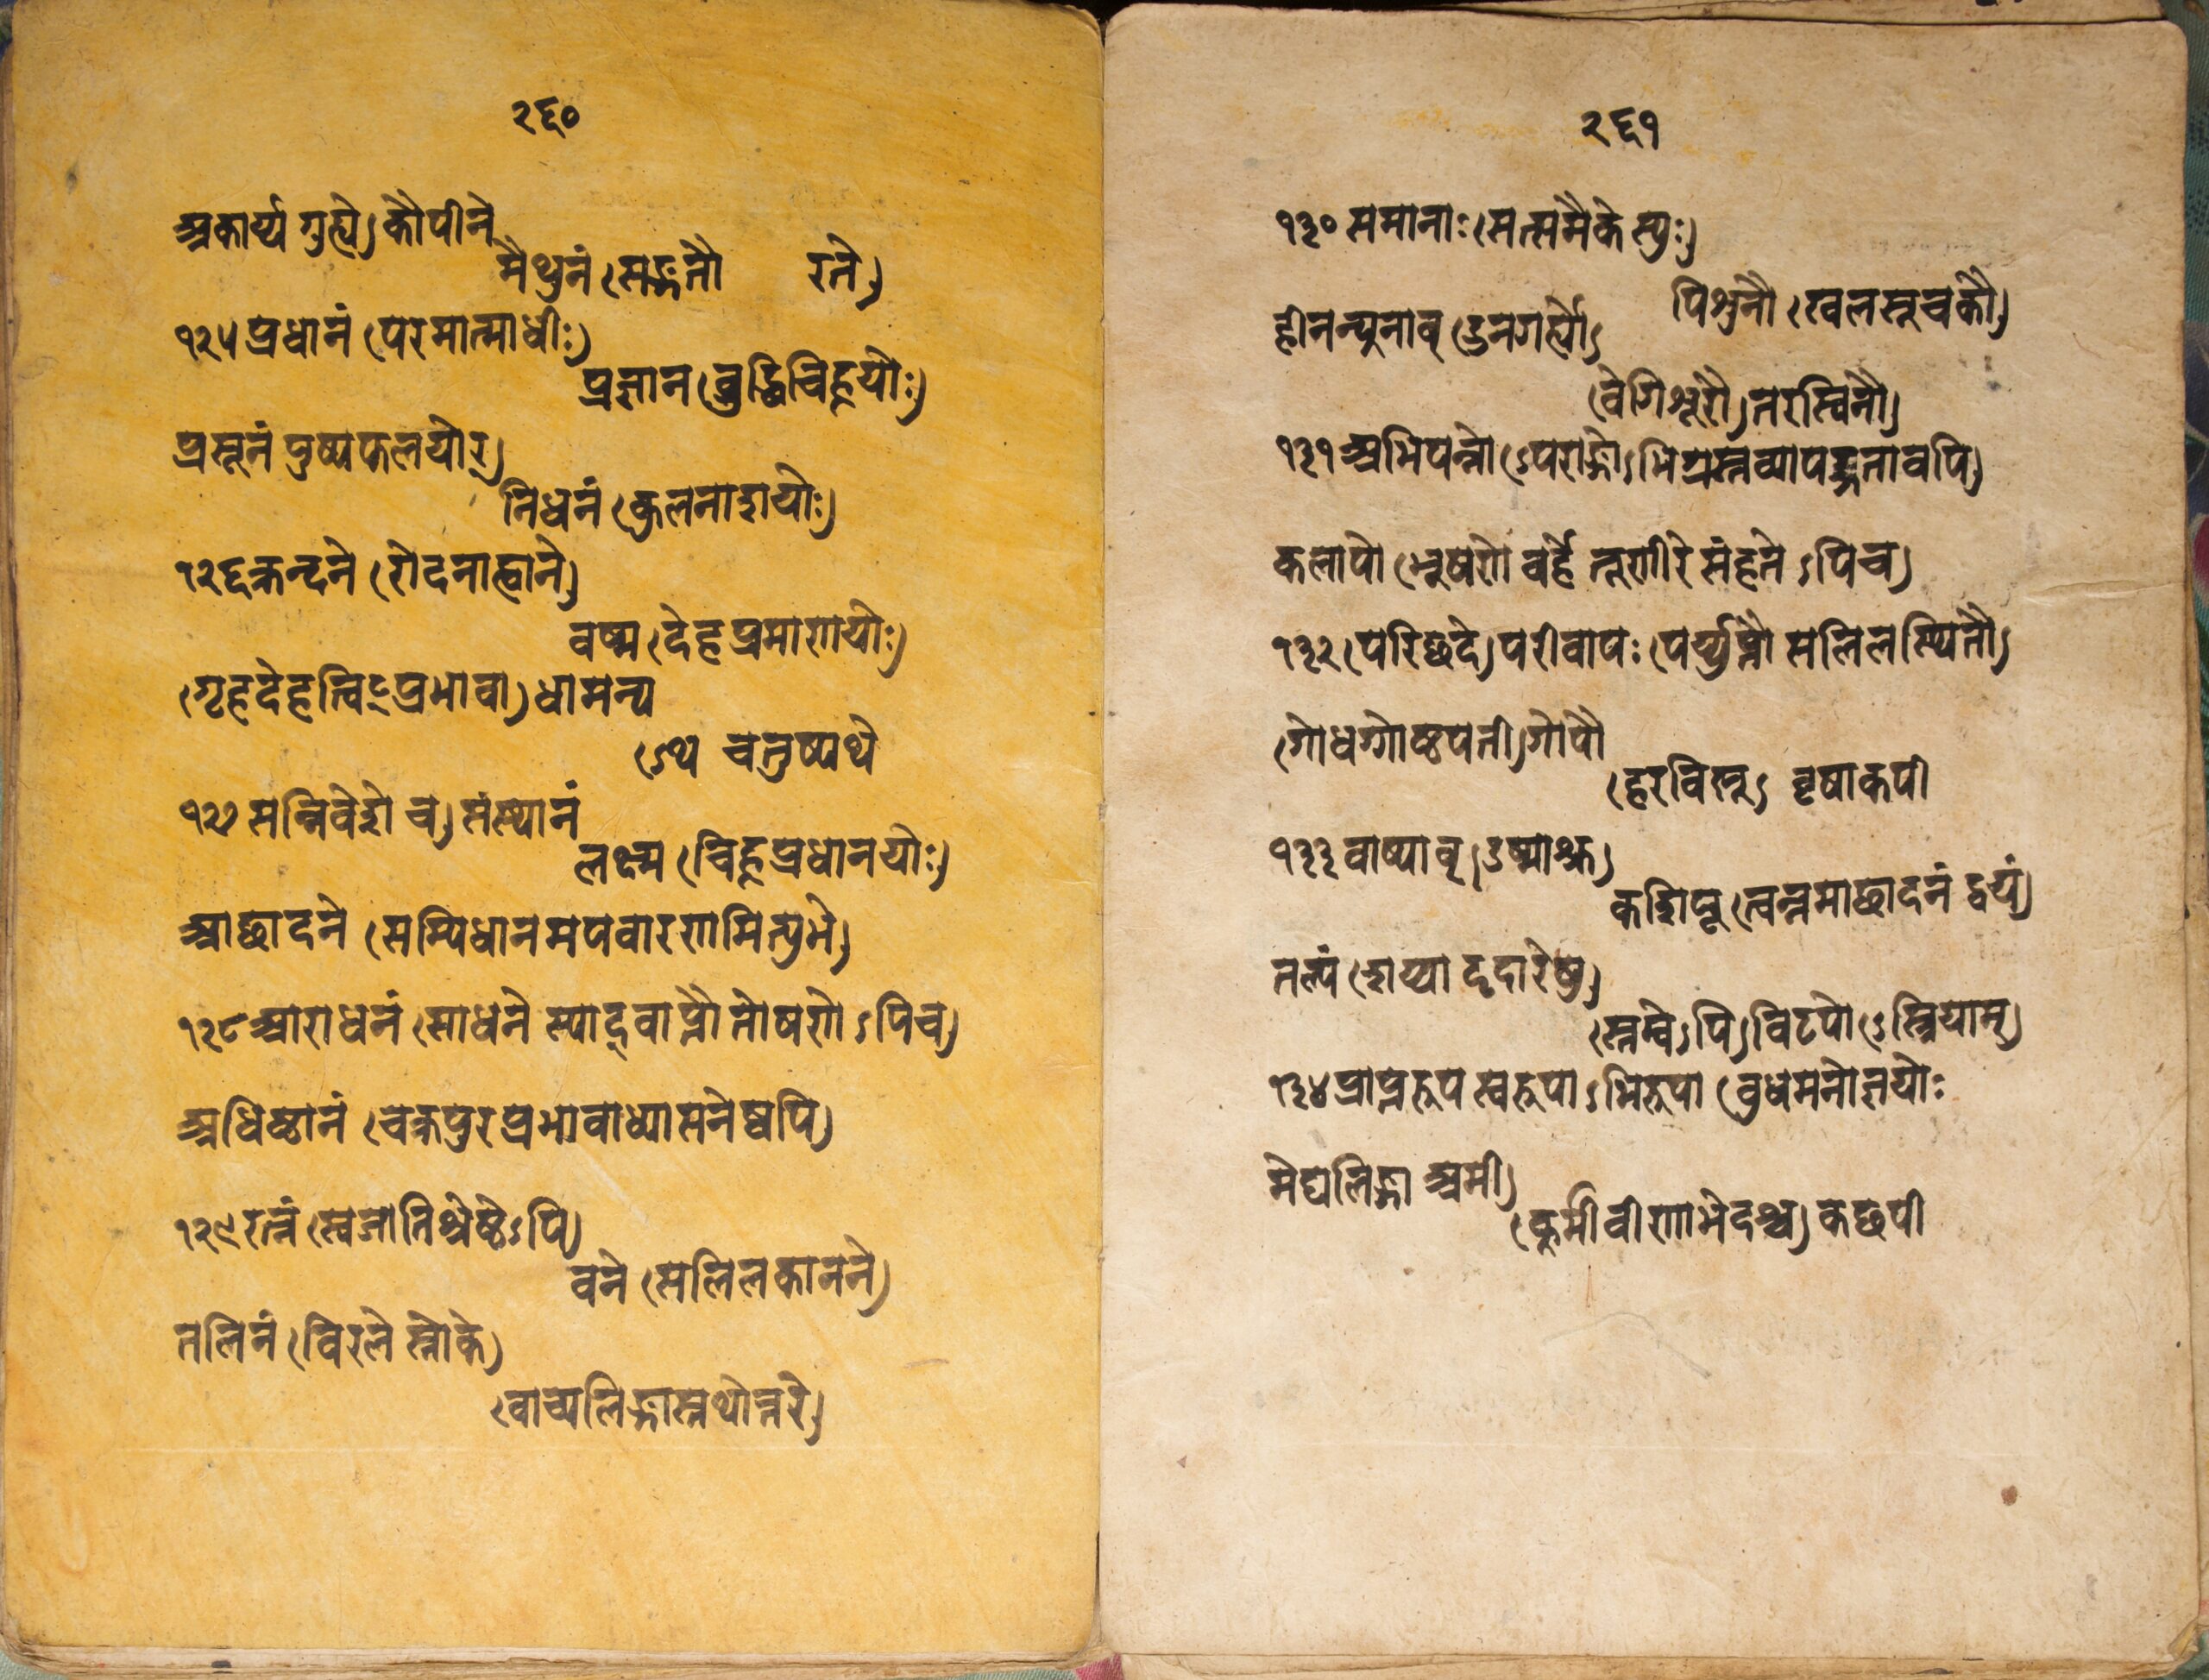 २६०
अकार्य्य गुह्ये) कौपीने
मैथुनं (सङ्गतौ रते)
१२५ प्रधानं (परमात्माधीः)
प्रज्ञान (वुद्धिचिह्नयोः)
प्रसूनं पुष्पफलयोर्)
निधनं (कुलनाशयोः)
१२६ क्रन्दने (रोदनाह्वाने)
वर्ष्म (देहप्रमाणयोः)
(गृहदेहत्विट्प्रभावा) धामन्य
ऽथ चतुष्पथे
१२७ सन्निवेशे च) संस्थानं
लक्ष्म (चिह्नप्रधानयोः)
आछादने (सम्पिधानमपवारणमित्युभे)
१२८ आराधनं (साधने स्यादवाप्तौ तोषणेऽपिच)
अधिष्ठानं (चक्रपुरप्रभावाध्यासनेष्वपि)
१२९ रत्नं (स्वजातिश्रेष्ठेऽपि)
वने (सलिलकानने)
तलिनं (विरले स्तोके)
(वाच्यलिङ्गास्तथोत्तरे)
२६१
१३० समानाः (सत्समैके स्युः)
पिशुनौ (खलसूचकौ)
हीनन्यूनाव् (ऊनगर्ह्यौ)
(वेगिशूरौ) तरस्विनौ)
१३१ अभिपन्नो (ऽपराद्धोऽभिग्रस्तव्यापद्गतावपि)
कलापो (भूषणे वर्हे तूणीरे संहतेऽपिच)
१३२ (परिछदे) परीवापः (पर्य्युप्तौ सलिलस्थितौ)
(गोधुग्गोष्ठपती) गोपौ
(हरविष्नू) वृषाकपी
१३३ वाष्पाव् (ऊष्माश्रु)
कशिपू (त्वन्नमाछादनं द्वयं)
तल्पं (शय्याट्टदारेषु)
(स्तम्वेऽपि) विटपो (ऽस्त्रियाम्)
१३४ प्राप्तरूप स्वरूपाऽभिरूपा (वुधमनोज्ञयोः
भेद्यलिङ्गा अमी)
(कूर्मी वीणाभेदश्च) कछपी